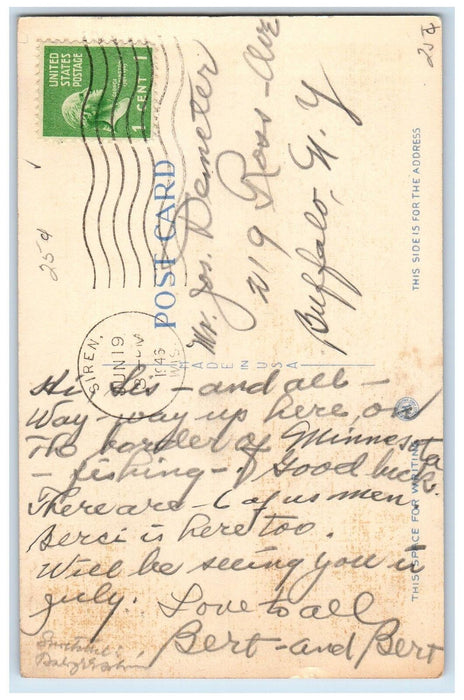 UNITED
STATES
POSTAGE
1 CENT 1
25¢
25¢
POST CARD
THIS SIDE IS FOR THE ADDRESS
Mr. Jos. Demeter
219 Ross - Ave
Buffalo, N. Y
SIREN,
JUN 19
1946
WIS
MADE IN U.S.A
THIS SPACE FOR WRITING
Hi Les - and all -
Way - way up here, on
The border of Minnesota
- fishing - good luck.
There are - 6 of us men
Berci is here too.
Will be seeing you in
july. Love to all
Bert - and Bert